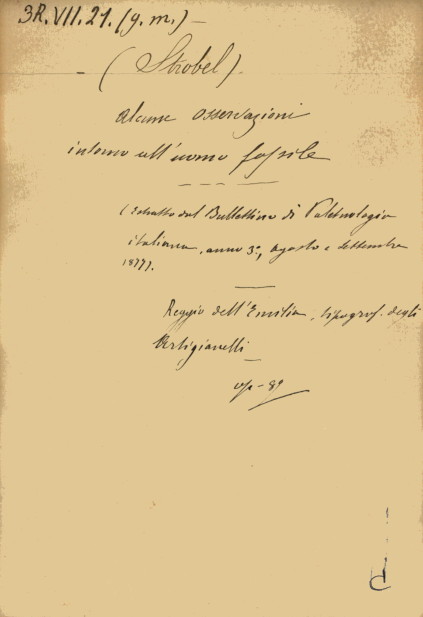 3R.VII.21.(g.m.)-
(Strobel).
Alcune osservazioni
intorno all'uomo fossile
(Estratto dal Bullettino di Paletnologia
italiana, anno 3º, agosto e settembre
1877).
Reggio dell'Emilia, tipograf. degli
Artigianelli
in-8º